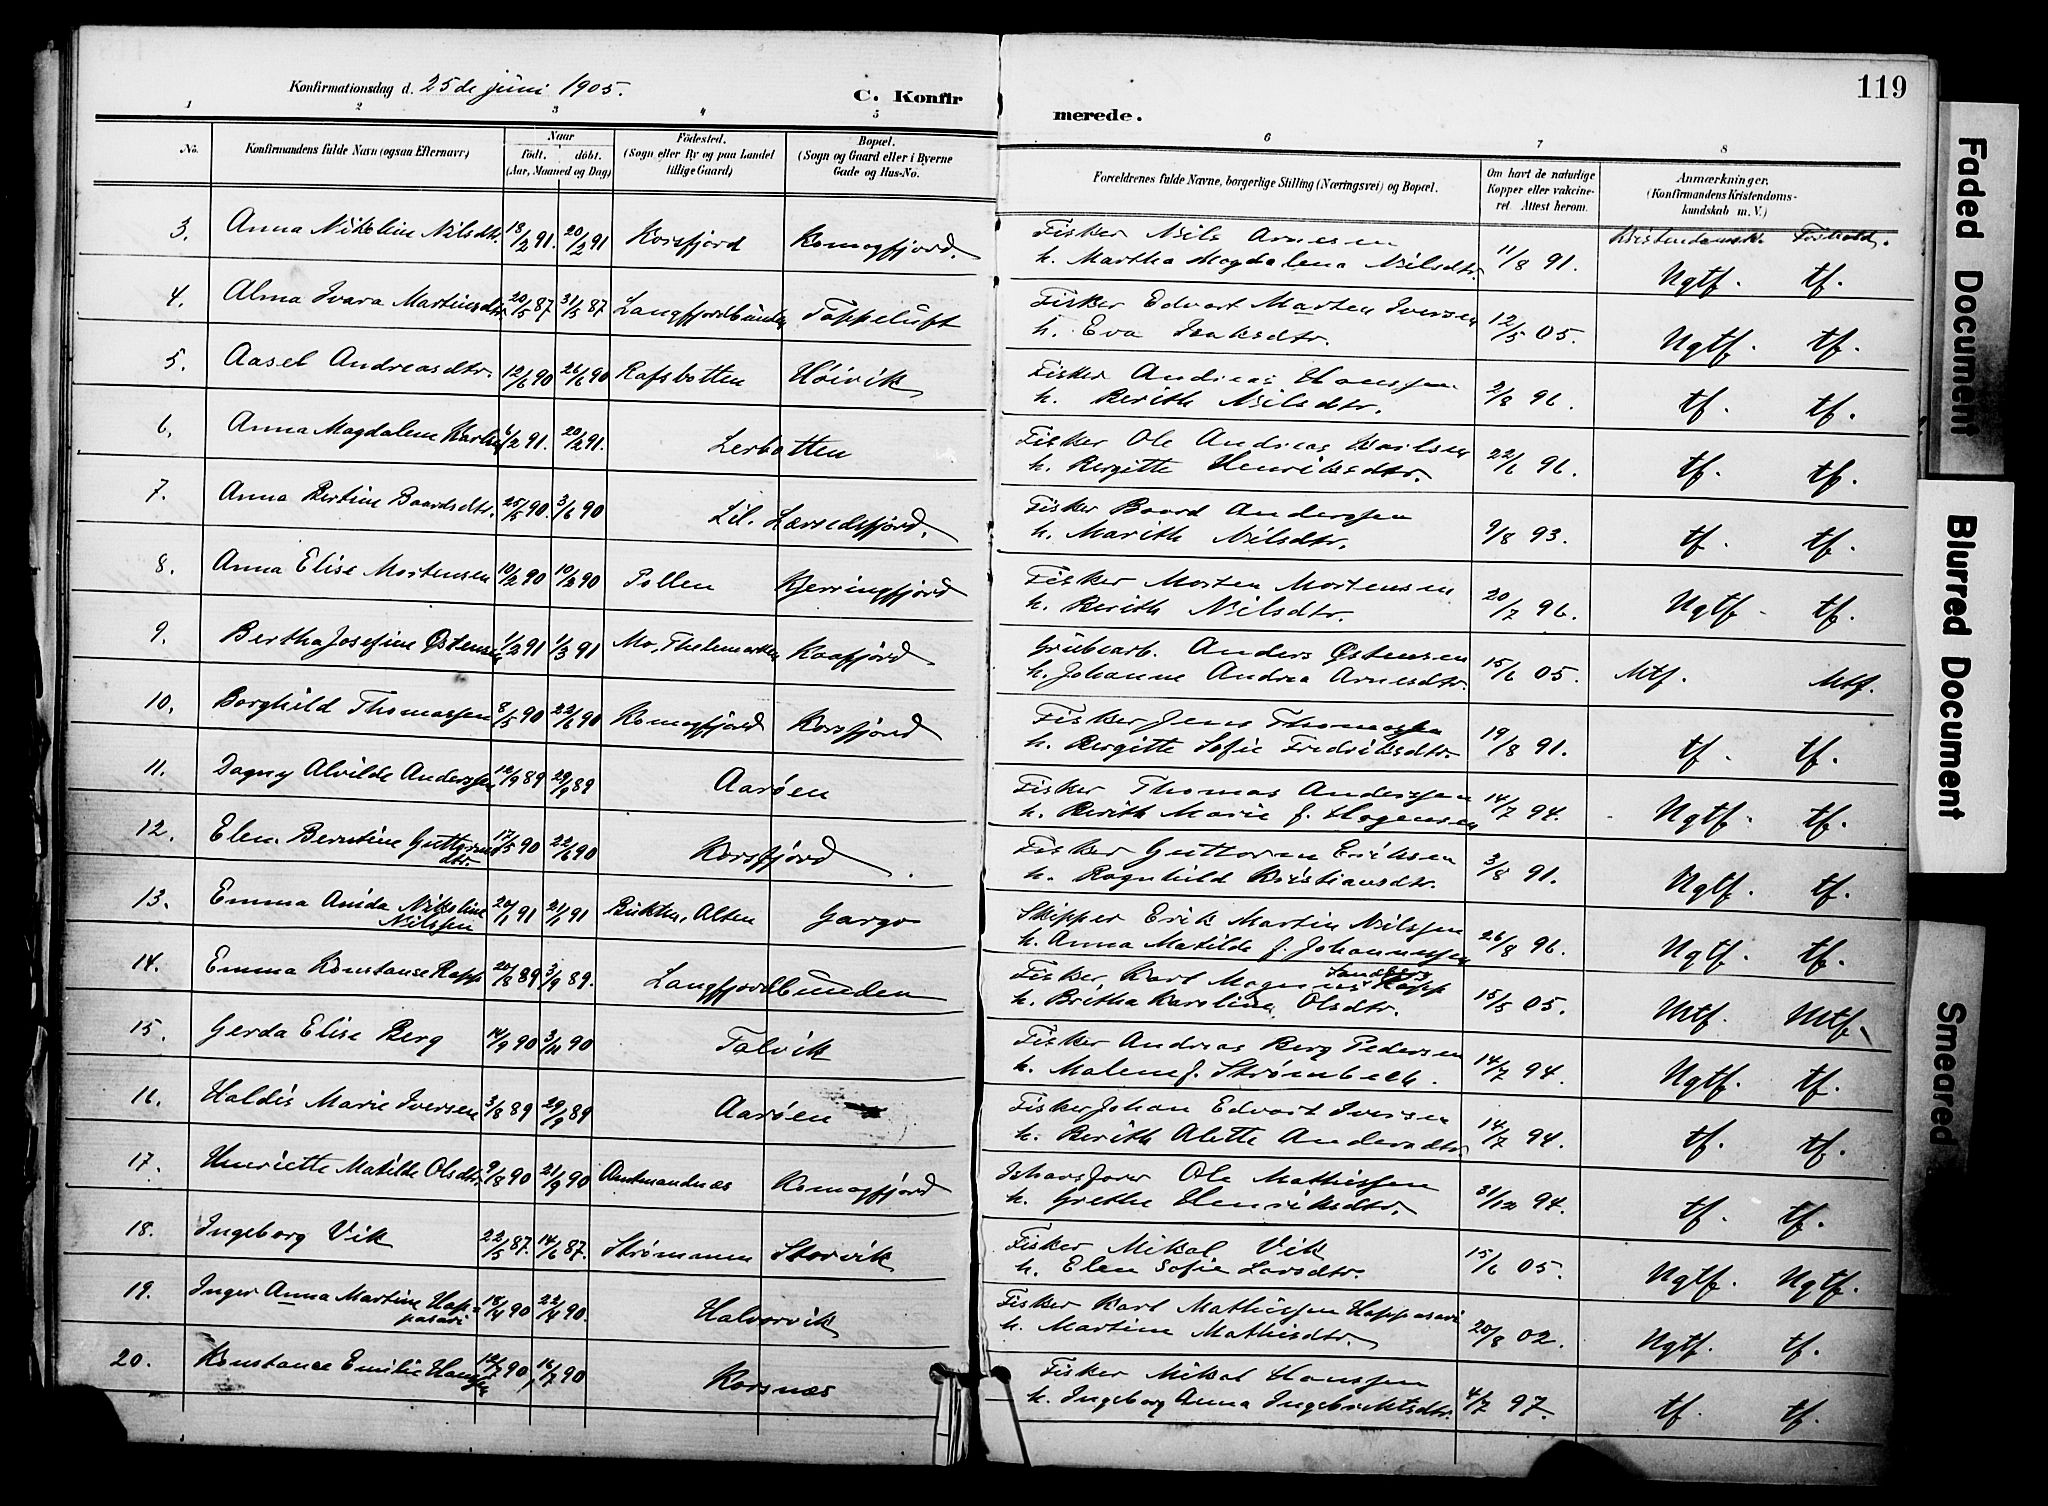 Konfirmationsdag d. 25de juni 1905.
C. Konfir
merede.
119
1 2 3 4 5 6 7 8
No.
Konfirmandens fulde Navn (ogsaa Efternavn)
Naar
født. døbt.
(Aar, Maaned og Dag)
Fødested.
(Sogn eller By og paa Landet
tillige Gaard)
Bopæl.
(Sogn og Gaard eller i Byerne
Gade og Hus-No.
Forældrenes fulde Navne, borgerlige Stilling (Næringsvei) og Bopæl.
Om havt de naturlige
Kopper eller vakcine-
ret Attest herom.
Anmærkninger,
(Konfirmandens Kristendoms-
kundskab m. V.)
Kristendomsk. Forhold.
3. Anna Nikoline Nilsdtr. 13/2 91. 20/2 91 Korsfjord Komagfjord. Fisker Nils Arnesen 11/8 91. Ngtf. tf.
h. Martha Magdalena Nilsdtr.
4. Alma Ivara Martinsdtr 20/5 87 31/5 87 Langfjordbunden Toppeluft Fisker Edvart Marten Iversen 12/5 05. Ngtf. tf.
h. Eva Isaksdtr.
5. Aasel Andreasdtr. 12/6 90 26/6 90 Rafsbotten Høivik Fisker Andreas Hanssen 2/8 96. tf. tf.
h. Berith Nilsdtr.
6. Anna Magdalene Karlsen 6/2 91. 20/2 91. Lerbotten Fisker Ole Andreas Karlsen 22/6 96. tf. tf.
h. Bergitte Henriksdtr.
7. Anna Bertine Baardsdtr. 25/5 90. 3/6 90 Lil. Lærredsfjord. Fisker Baard Anderssen 9/8 93. tf. tf.
h. Marith Nilsdtr.
8. Anna Elise Mortensen 10/2 90 10/2 90 Pollen Kjerringfjord Fisker Morten Mortensen 20/7 96. Ngtf. tf.
h. Berith Nilsdtr.
9. Bertha Josefine Østensen 1/2 91 1/3 91 Mo, Thelemarken Kaafjord Grubearb. Anders Østensen 15/6 05. Mtf. Mtf.
h. Johanne Andrea Arnesdtr.
10. Borghild Thomassen 8/5 90 22/6 90 Komagfjord Korsfjord Fisker Jens Thomassen 19/8 91. tf. tf.
h. Bergitte Sofie Fredriksdtr.
11. Dagny Alvilde Anderssen 10/9 89 29/9 89 Aarøen Fisker Thomas Anderssen 14/7 94. Ngtf. tf.
h. Berith Marie f. Hagensen
12. Elen Berntine Guttorms 17/5 90 22/6 90 Korsfjord Fisker Guttorm Eriksen 3/8 91. Ngtf. tf.
dtr.
h. Ragnhild Kristiansdtr.
13. Emma Anida Nikoline 20/1 91 21/1 91 Bukten, Alten Gargo Skipper Erik Martin Nilssen 26/8 96. Ngtf. tf.
Nilssen
h. Anna Matilde f. Johannessen
14. Emma Konstanse Rapp 20/8 89 3/9 89. Langfjordbunden Fisker Karl Magnus Sandberg Rapp 15/5 05. Mtf. Mtf.
h. Britha Karolina Olsdtr.
15. Gerda Elise Berg 14/9 90 3/11 90 Talvik Fisker Andreas Berg Pedersen 14/7 94. Ngtf. tf.
h. Malene f. Strømbeck.
16. Haldis Marie Iversen 3/8 89 29/9 89 Aarøen Fisker Johan Edvart Iversen 14/7 94. tf. tf.
h. Berith Alette Andersdtr.
17. Henriette Matilde Olsdtr. 9/8 90 21/9 90 Amtmandnæs Komagfjord Ole Mathissen 31/12 94. tf. tf.
h. Grethe Henriksdtr.
18. Ingeborg Vik 22/5 87. 14/6 87. Strømmen Storvik Fisker Mikal Vik 15/6 05. Ngtf. Ngtf.
h. Elen Sofie Larsdtr.
19. Inger Anna Martine Hap- 18/4 90 22/4 90. Halvorvik Fisker Karl Mathissen Happasari 20/8 02. Ngtf. tf.
pasari
h. Martine Mathisdtr.
20. Konstance Emilie Hanssen 10/7 90 16/7 90 Korsnæs Fisker Mikal Hanssen 4/7 97. tf. tf.
h. Ingeborg Anna Ingebriktsdtr.
Faded Document
Blurred Document
Smeared